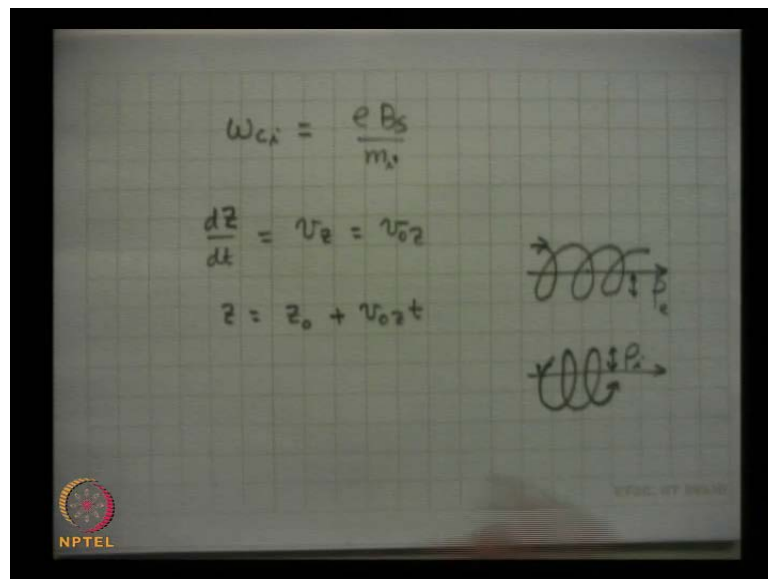 ω_ci = e B_s / m_i
dz/dt = v_z = v_0z
z = z_0 + v_0z t
ρ_e
ρ_i
NPTEL